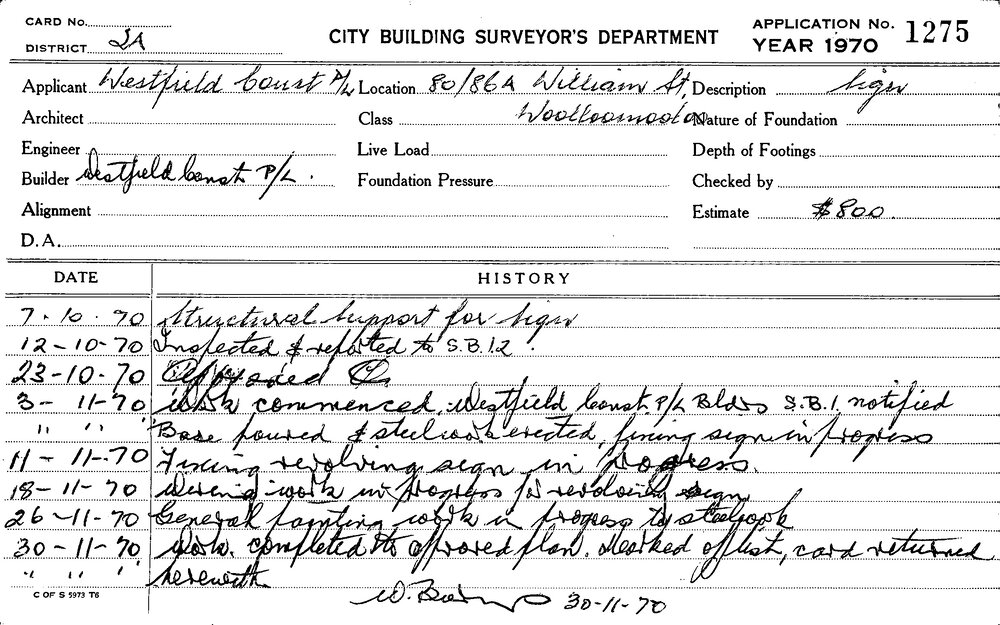 CARD No.
DISTRICT 2A
CITY BUILDING SURVEYOR'S DEPARTMENT
APPLICATION No. 1275
YEAR 1970
Applicant Westfield Const P/L Location 80/86A William St, Description Sign
Architect Class Woolloomooloo Nature of Foundation
Engineer Live Load Depth of Footings
Builder Westfield Const P/L. Foundation Pressure Checked by
Alignment Estimate $800.
D.A.
DATE HISTORY
7.10.70 Structural Support for Sign
12-10-70 Inspected & reported to S.B.12.
23-10-70 Approved
3-11-70 Work commenced. Westfield Const. P/L Bldrs S.B.1. notified
" " " Base poured & steelwork erected, fixing sign in progress
11-11-70 Fixing revolving sign in progress.
18-11-70 Wiring work in progress for revolving sign
26-11-70 General painting work in progress to steelwork
30-11-70 Work. completed to approved plan. Marked off list, card returned
" " " herewith
C OF S 5973 T6
W. 30-11-70